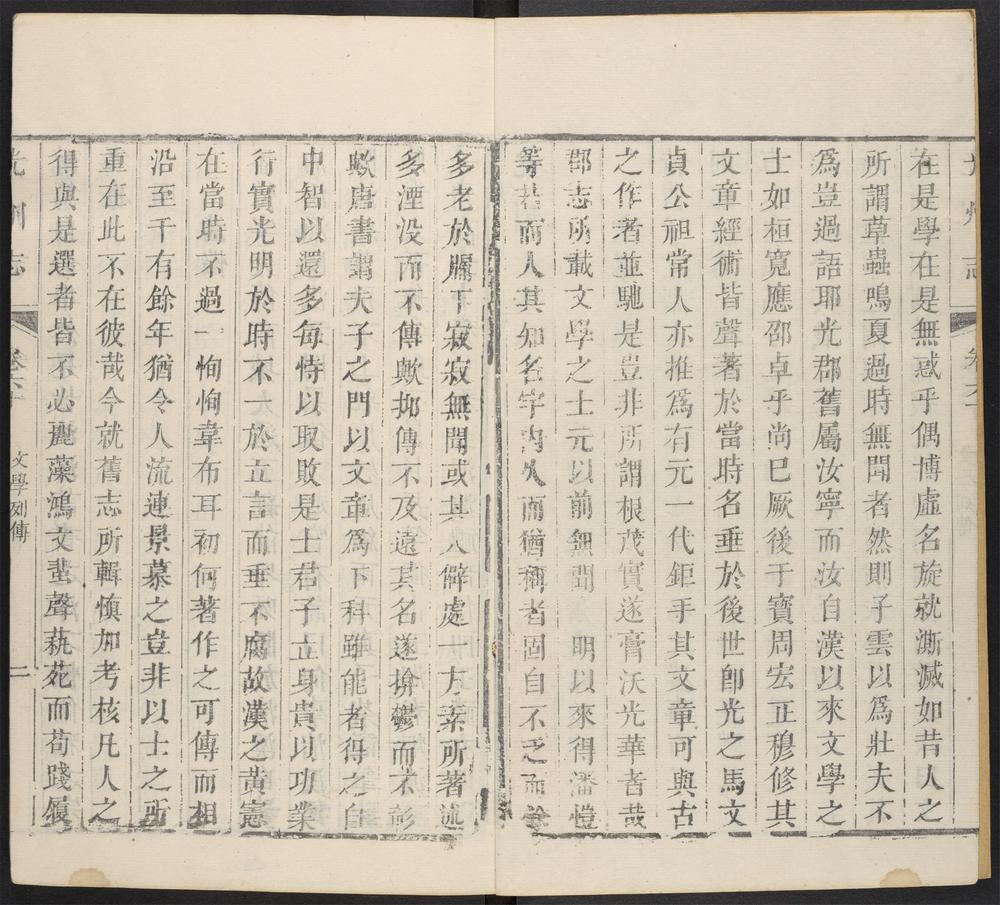 光州志
卷六十
在是學在是無惑乎偶博虛名旋就澌滅如昔人之
所謂草蟲鳴夏過時無聞者然則子雲以為壯夫不
為豈過語耶光郡舊屬汝寧而汝自漢以來文學之
士如桓寬應邵卓乎尚巳厥後于寶周宏正穆修其
文章經術皆聲著於當時名垂於後世卽光之馬文
貞公祖常人亦推爲有元一代鉅手其文章可與古
之作者並馳是豈非所謂根茂實遂膏沃光華者哉
郡志所載文學之士元以前無聞 明以來得潘愷
等若而人其知名宇內久而猶稱者固自不乏而
多老於牖下寂寂無聞或其人僻處一方素所著述
多湮沒而不傳歟抑傳不及遠其名遂揜鬱而不彭
歟唐書謂夫子之門以文章爲下科雖能者得之自
中智以還多每恃以取敗是士君子立身貴以功業
行實光明於時不一於立言而垂不腐故漢之黃憲
在當時不過一恂恂韋布耳初何著作之可傳而相
沿至千有餘年猶令人流連景慕之豈非以士之所
重在此不在彼哉今就舊志所輯愼加考核凡人之
得與是選者皆不必麗藻鴻文蜚聲蓺苑而苟踐履
光州志
卷六十
文學列傳
二